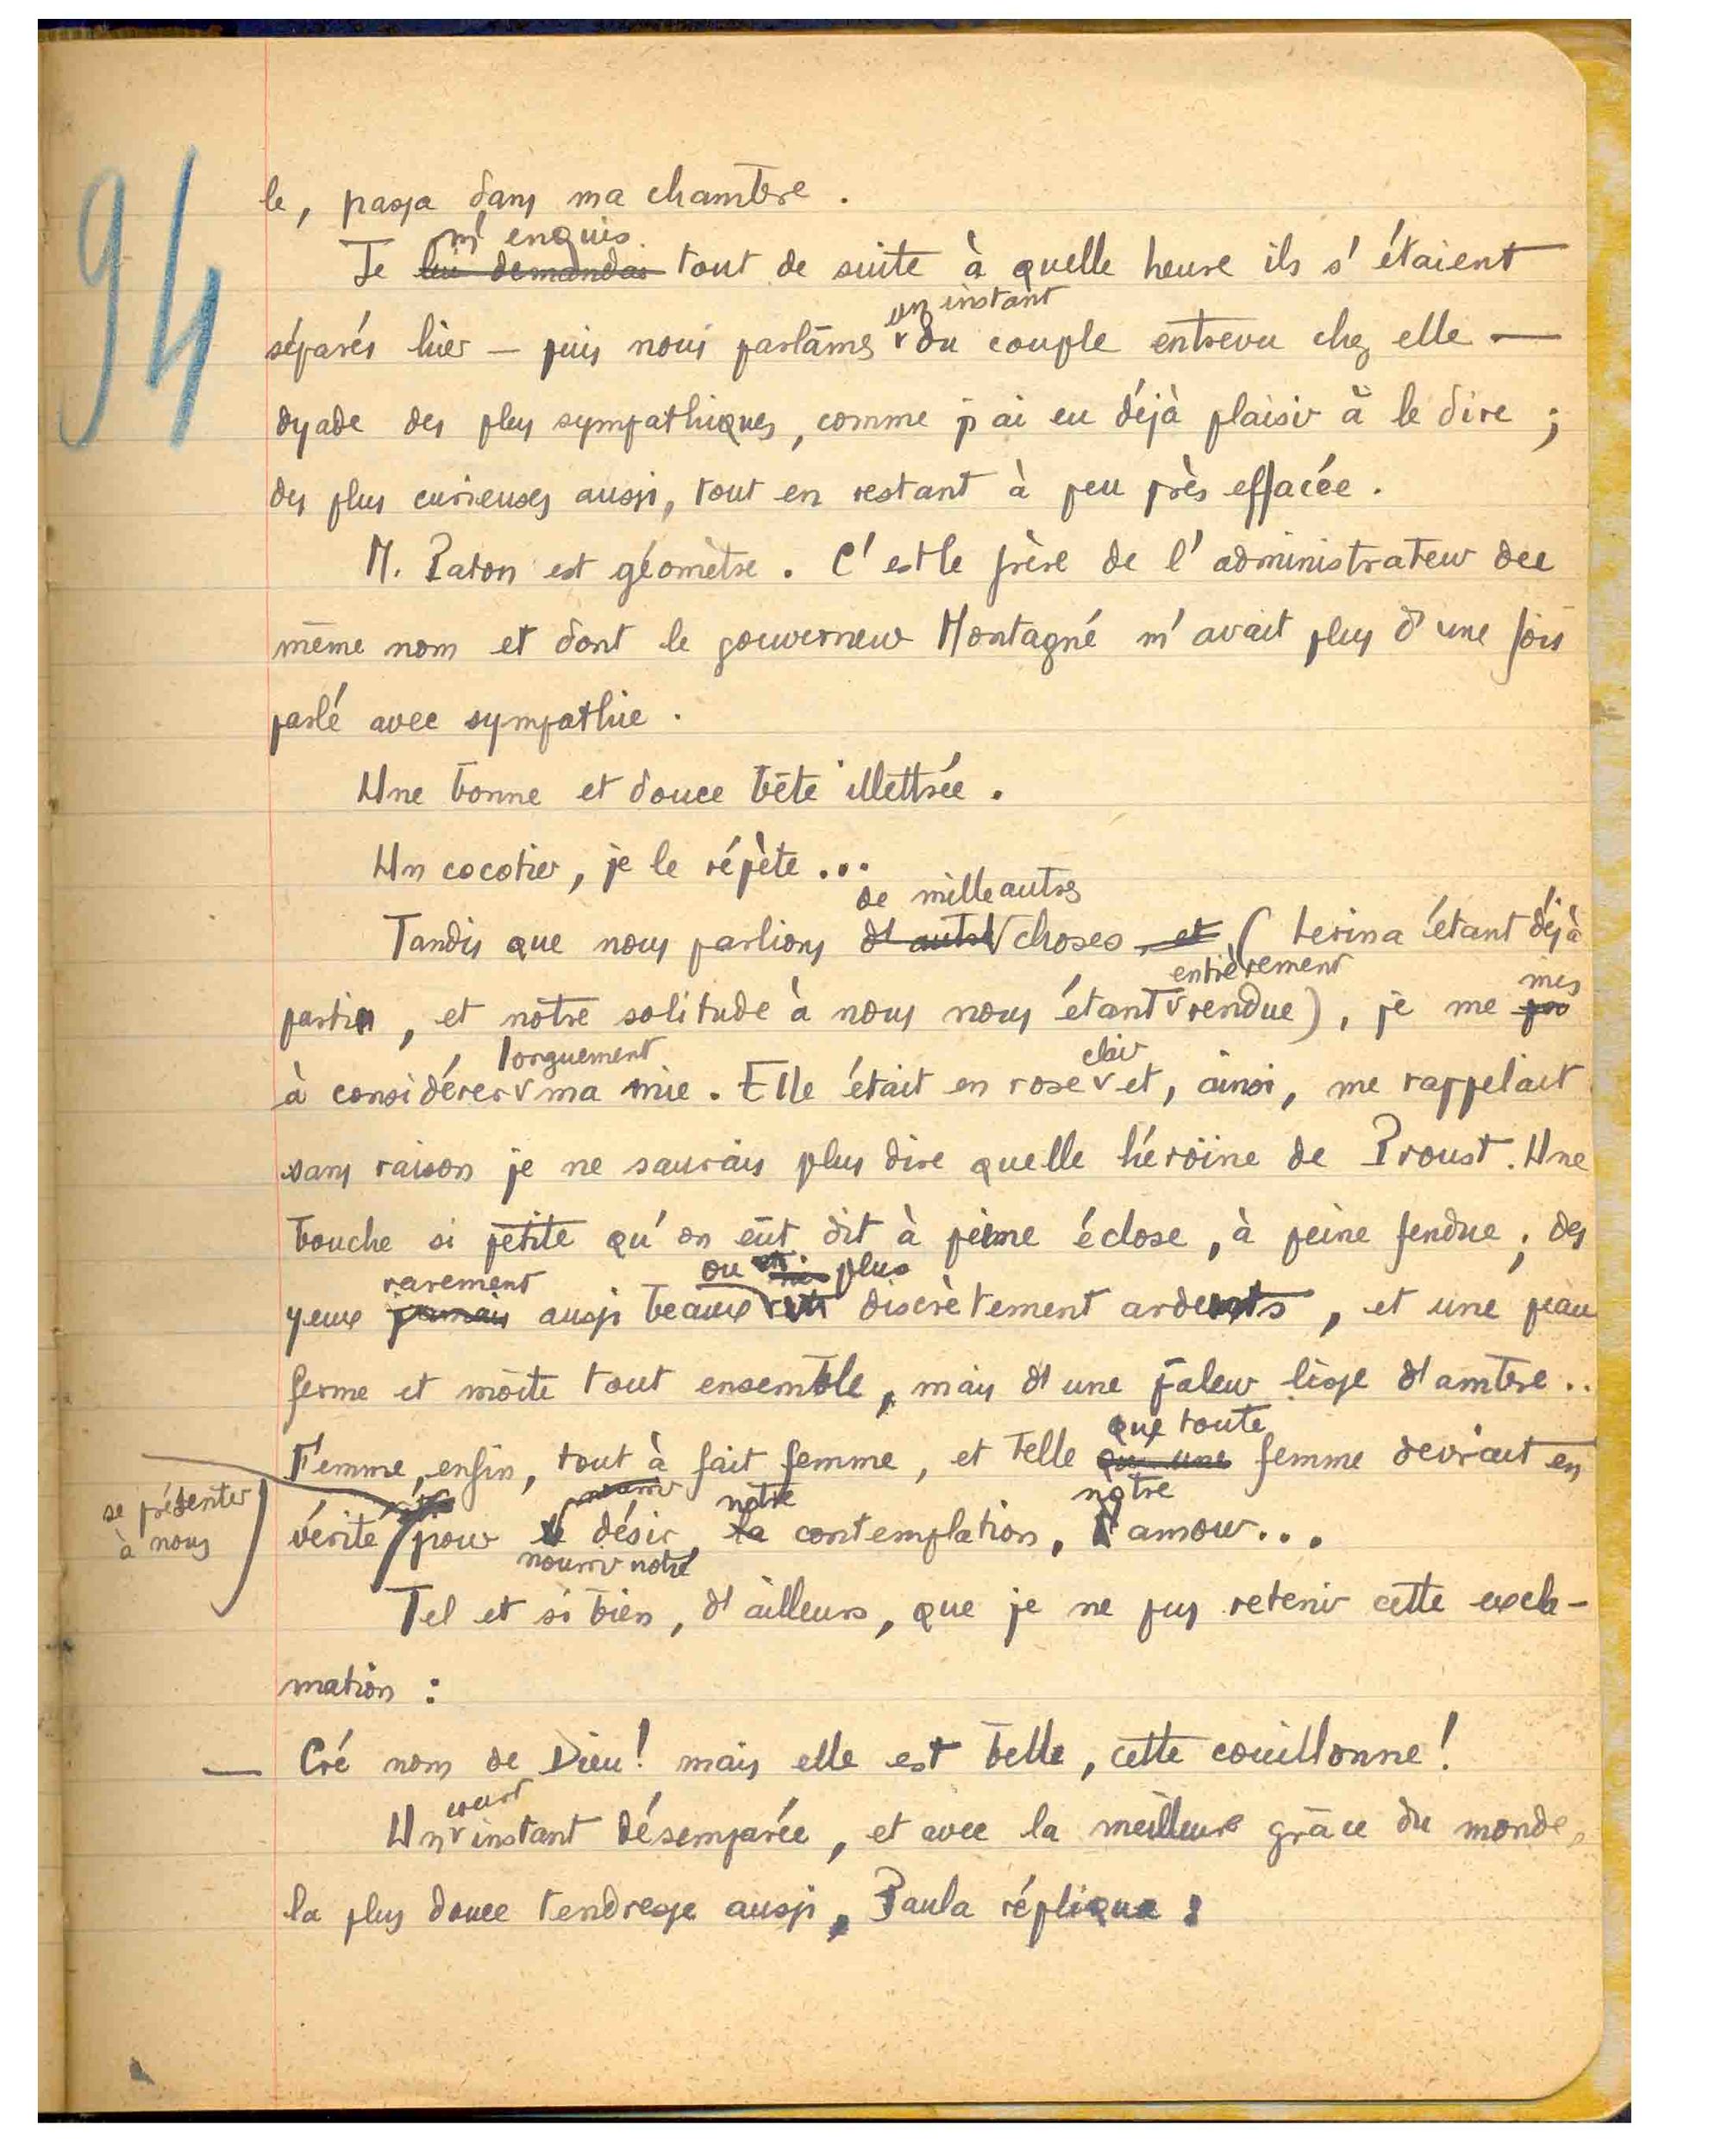 94
le, passa dans ma chambre.
m'enquis
Je lui demandai tout de suite à quelle heure ils s'étaient
un instant
séparés hier — puis nous parlâmes du couple entrevu chez elle —
dyade des plus sympathiques, comme j'ai eu déjà plaisir à le dire ;
des plus curieuses aussi, tout en restant à peu près effacée.
M. Raton est géomètre. C'est le frère de l'administrateur de
même nom et dont le gouverneur Montagné m'avait plus d'une fois
parlé avec sympathie.
Une bonne et douce bête illettrée.
Un cocotier, je le répète...
de mille autres
Tandis que nous parlions d'autres choses et ( Zerina étant déjà
entièrement mis
partie, et notre solitude à nous nous étant rendue), je me
longuement clair
à considérer ma mie. Elle était en rose et, ainsi, me rappelait
sans raison je ne saurais plus dire quelle héroïne de Proust. Une
bouche si petite qu'on eût dit à peine éclose, à peine fendue ; des
rarement ou plus
yeux jamais aussi beaux discrètement ardents, et une peau
ferme et moite tout ensemble, mais d'une pâleur lisse d'ambre..
que toute
Femme, enfin, tout à fait femme, et telle qu'une femme devrait en
nourrir notre notre
se présenter
à nous
vérité pour le désir, la contemplation, l'amour...
nourrir notre
Tel et si bien, d'ailleurs, que je ne pus retenir cette excla-
mation :
— Cré nom de Dieu ! mais elle est belle, cette couillonne !
court
Un instant désemparée, et avec la meilleure grâce du monde,
la plus douce tendresse aussi, Paula répliqua :